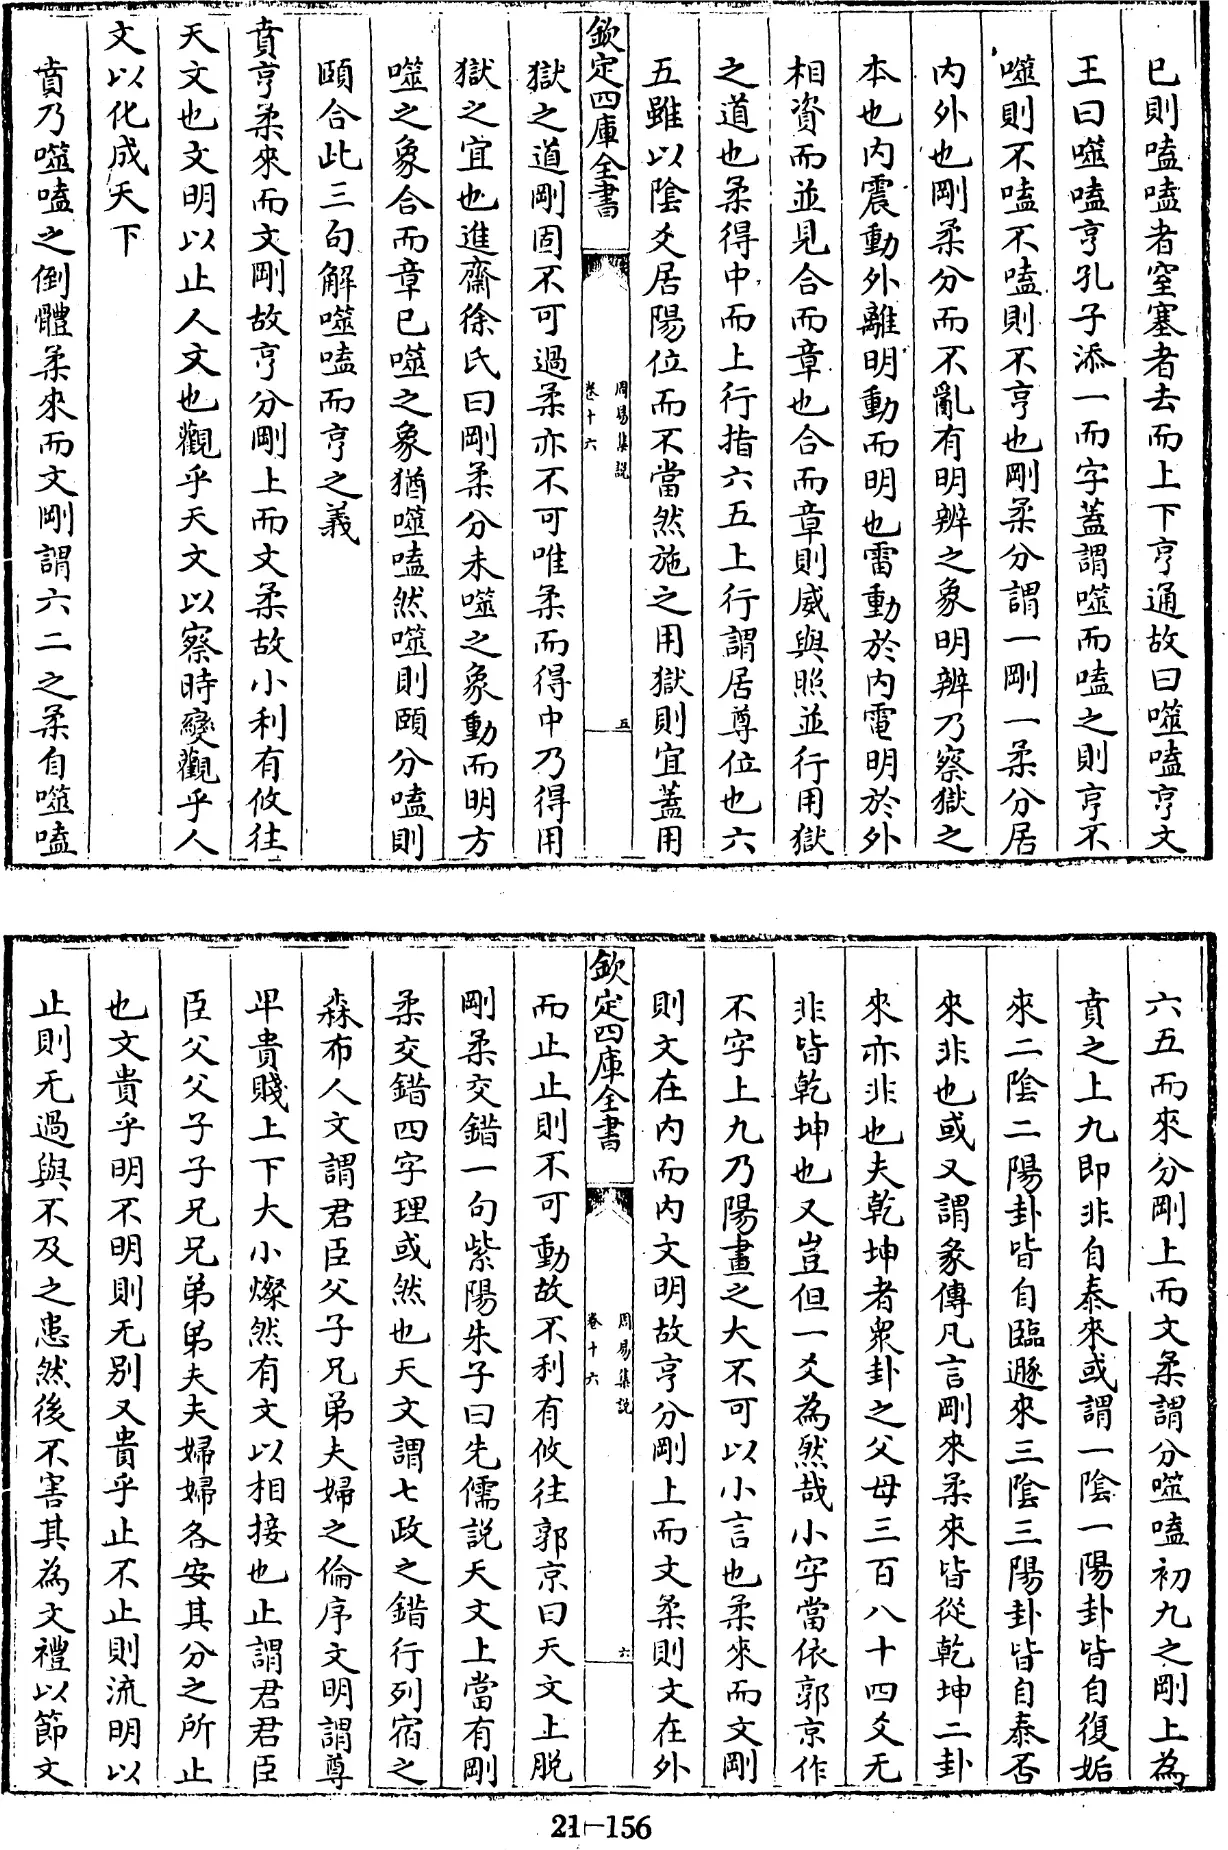 巳則嗑嗑者窒塞者去而上下亨通故曰噬嗑亨文
王曰噬嗑亨孔子添一而字蓋謂噬而嗑之則亨不
噬則不嗑不嗑則不亨也剛柔分謂一剛一柔分居
内外也剛柔分而不亂有明辨之象明辨乃察獄之
本也内震動外離明動而明也雷動於内電明於外
相資而並見合而章也合而章則威與照並行用獄
之道也柔得中而上行指六五上行謂居尊位也六
五雖以陰爻居陽位而不當然施之用獄則宜蓋用
欽定四庫全書
周易集說
卷十六
五
獄之道剛固不可過柔亦不可唯柔而得中乃得用
獄之宜也進齋徐氏曰剛柔分未噬之象動而明方
噬之象合而章已噬之象猶噬嗑然噬則頤分嗑則
頤合此三句解噬嗑而亨之義
賁亨柔來而文剛故亨分剛上而文柔故小利有攸往
天文也文明以止人文也觀乎天文以察時變觀乎人
文以化成天下
賁乃噬嗑之倒體柔來而文剛謂六二之柔自噬嗑
六五而來分剛上而文柔謂分噬嗑初九之剛上為
賁之上九即非自泰來或謂一陰一陽卦皆自復姤
來二陰二陽卦皆自臨遯來三陰三陽卦皆自泰否
來非也或又謂彖傳凡言剛來柔來皆從乾坤二卦
來亦非也夫乾坤者衆卦之父母三百八十四爻无
非皆乾坤也又豈但一爻為然哉小字當依郭京作
不字上九乃陽畫之大不可以小言也柔來而文剛
則文在内而内文明故亨分剛上而文柔則文在外
欽定四庫全書
周易集說
卷十六
六
而止止則不可動故不利有攸往郭京曰天文上脱
剛柔交錯一句紫陽朱子曰先儒説天文上當有剛
柔交錯四字理或然也天文謂七政之錯行列宿之
森布人文謂君臣父子兄弟夫婦之倫序文明謂尊
卑貴賤上下大小燦然有文以相接也止謂君君臣
臣父父子子兄兄弟弟夫夫婦婦各安其分之所止
也文貴乎明不明則无别又貴乎止不止則流明以
止則无過與不及之患然後不害其為文禮以節文
21-156